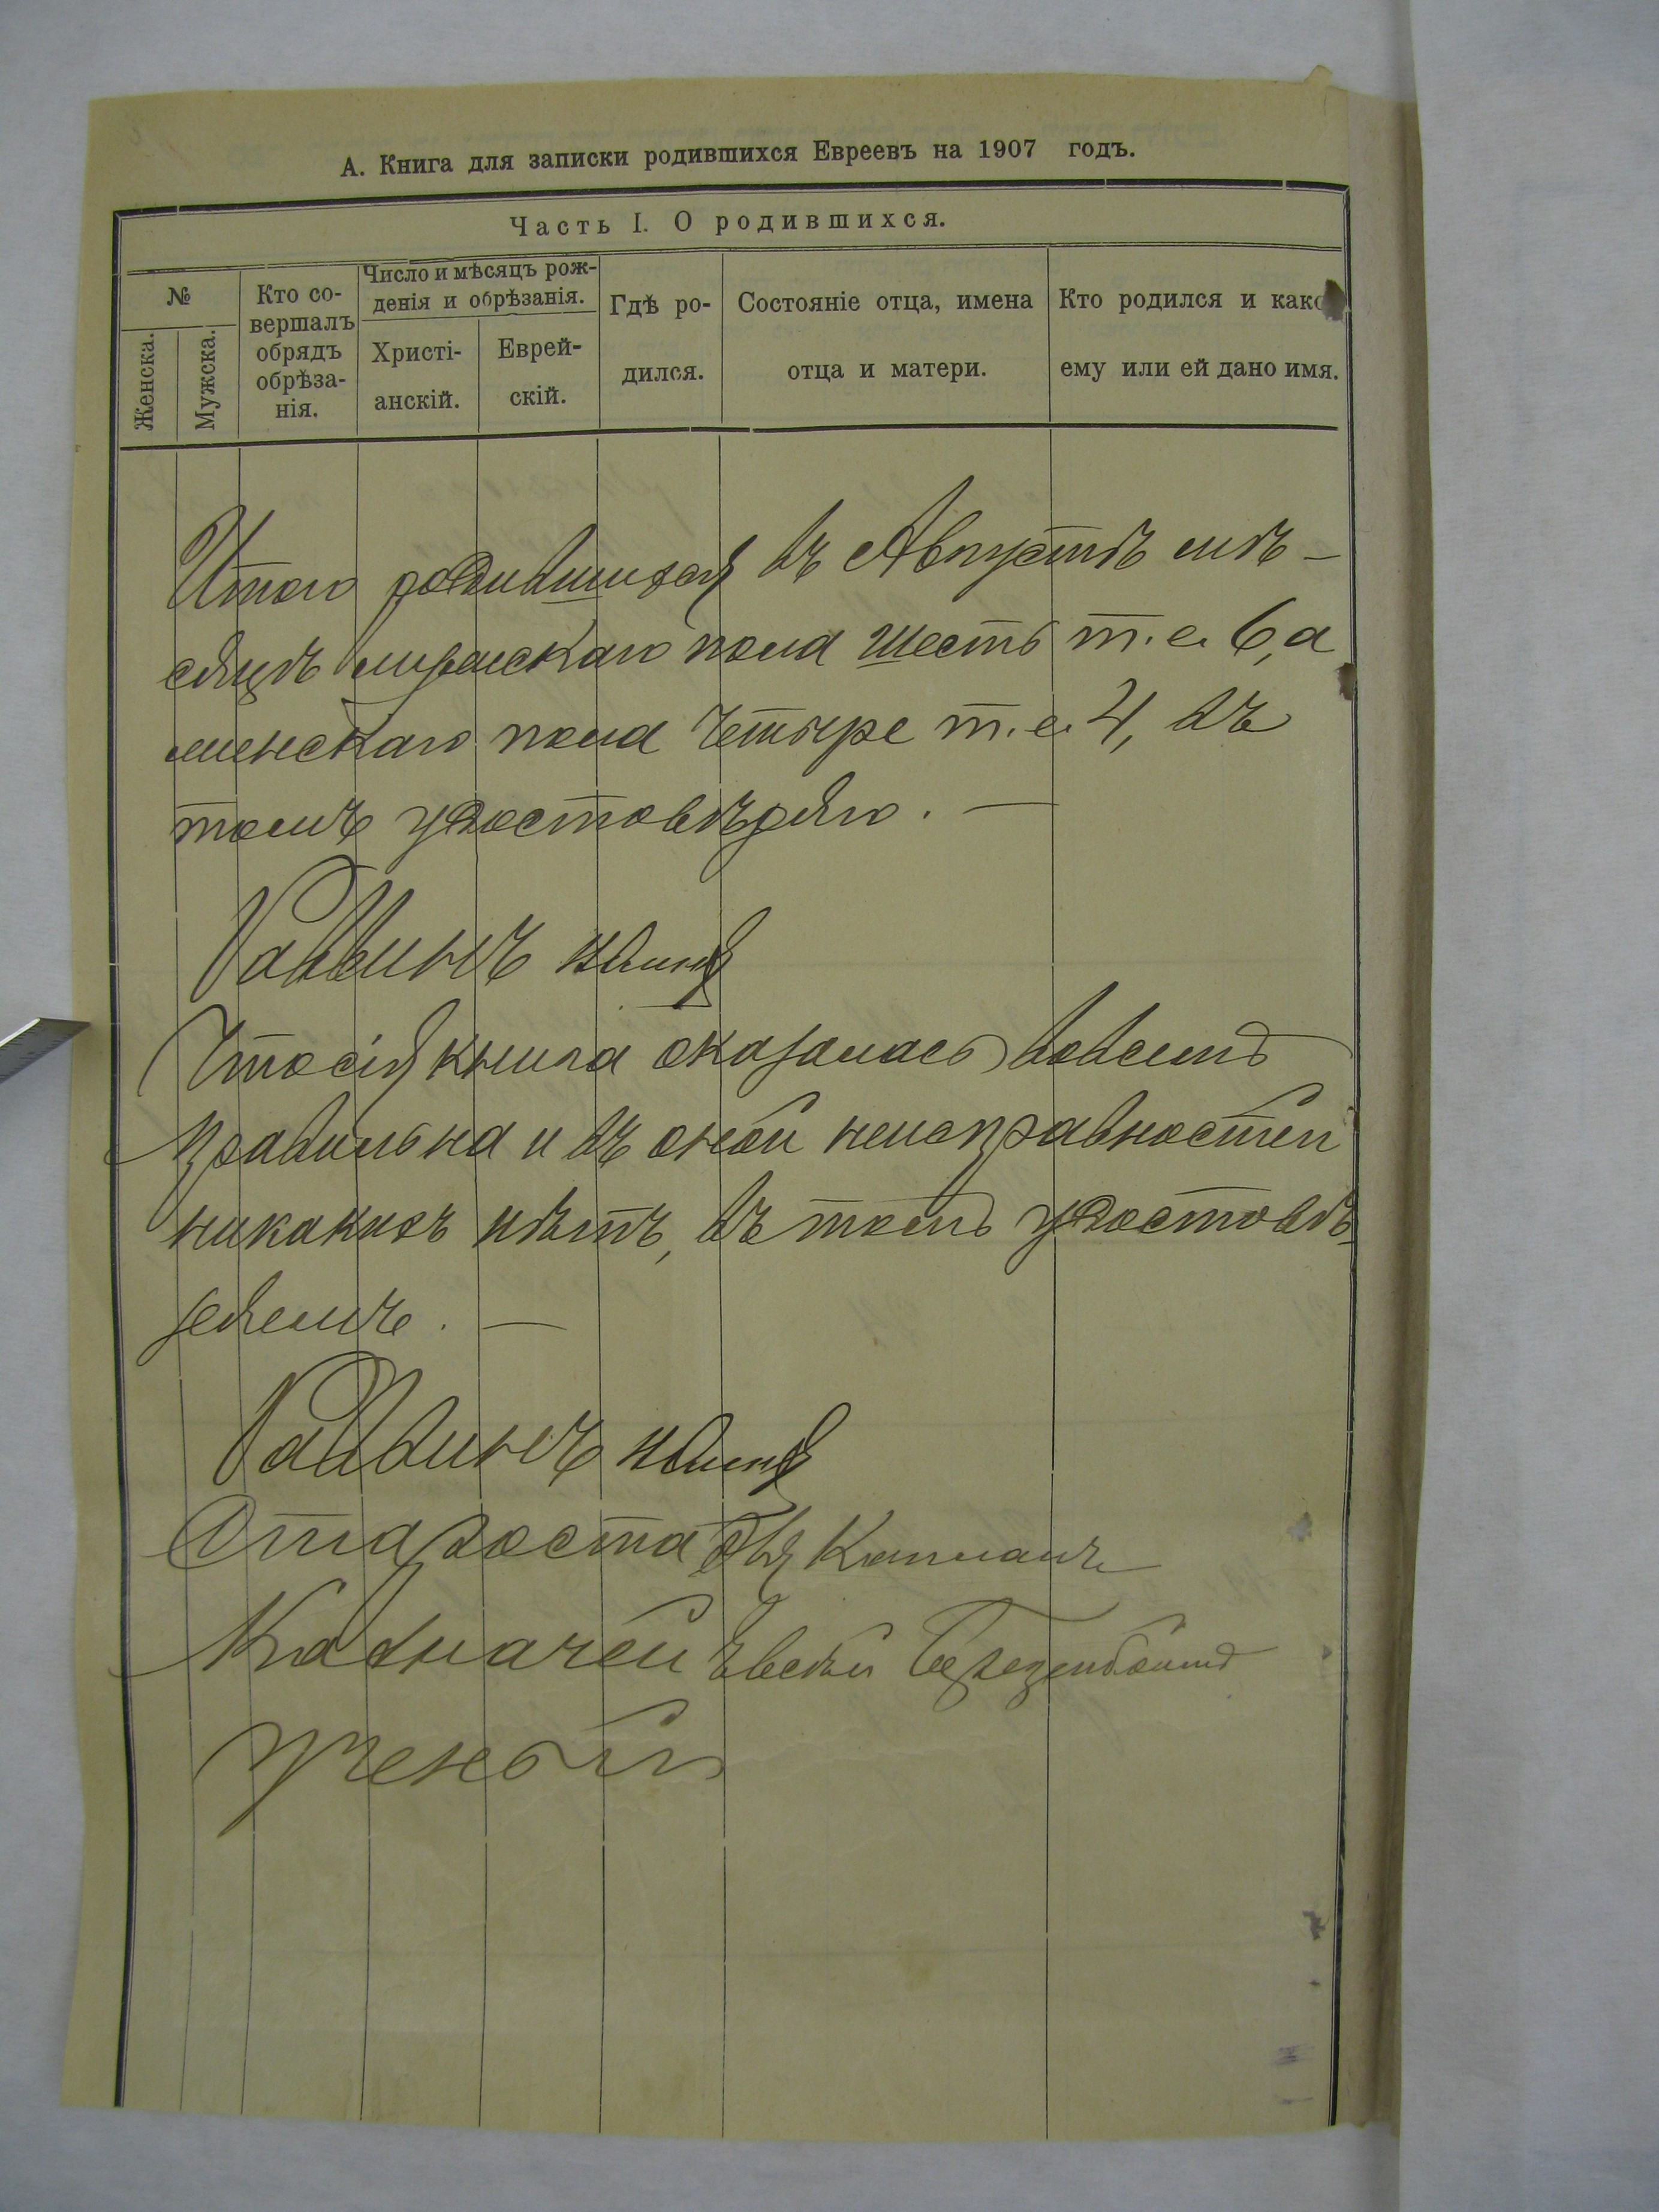 А. Книга для записки родившихся Евреевъ на 1907 годъ.
Часть I. О родившихся.
№
Женска.
Мужска.
Кто со-
вершалъ
обрядъ
обрѣза-
нія.
Число и мѣсяцъ рож-
денія и обрѣзанія.
Христі-
анскій.
Еврей-
скій.
Гдѣ ро-
дился.
Состояніе отца, имена
отца и матери.
Кто родился и како
ему или ей дано имя.
Итого родившихся въ Августѣ мѣ-
сяцѣ мужскаго пола шесть т.е. 6, а
женскаго пола четыре т.е. 4, въ
томъ удостовѣряю. —
Раввинъ
Что сія книга оказалась вовсемъ
правильна и въ оной неисправностей
никакихъ нѣтъ, въ томъ удостовѣ-
ряемъ. —
Раввинъ
Староста Капланъ
Казначей
Ученый